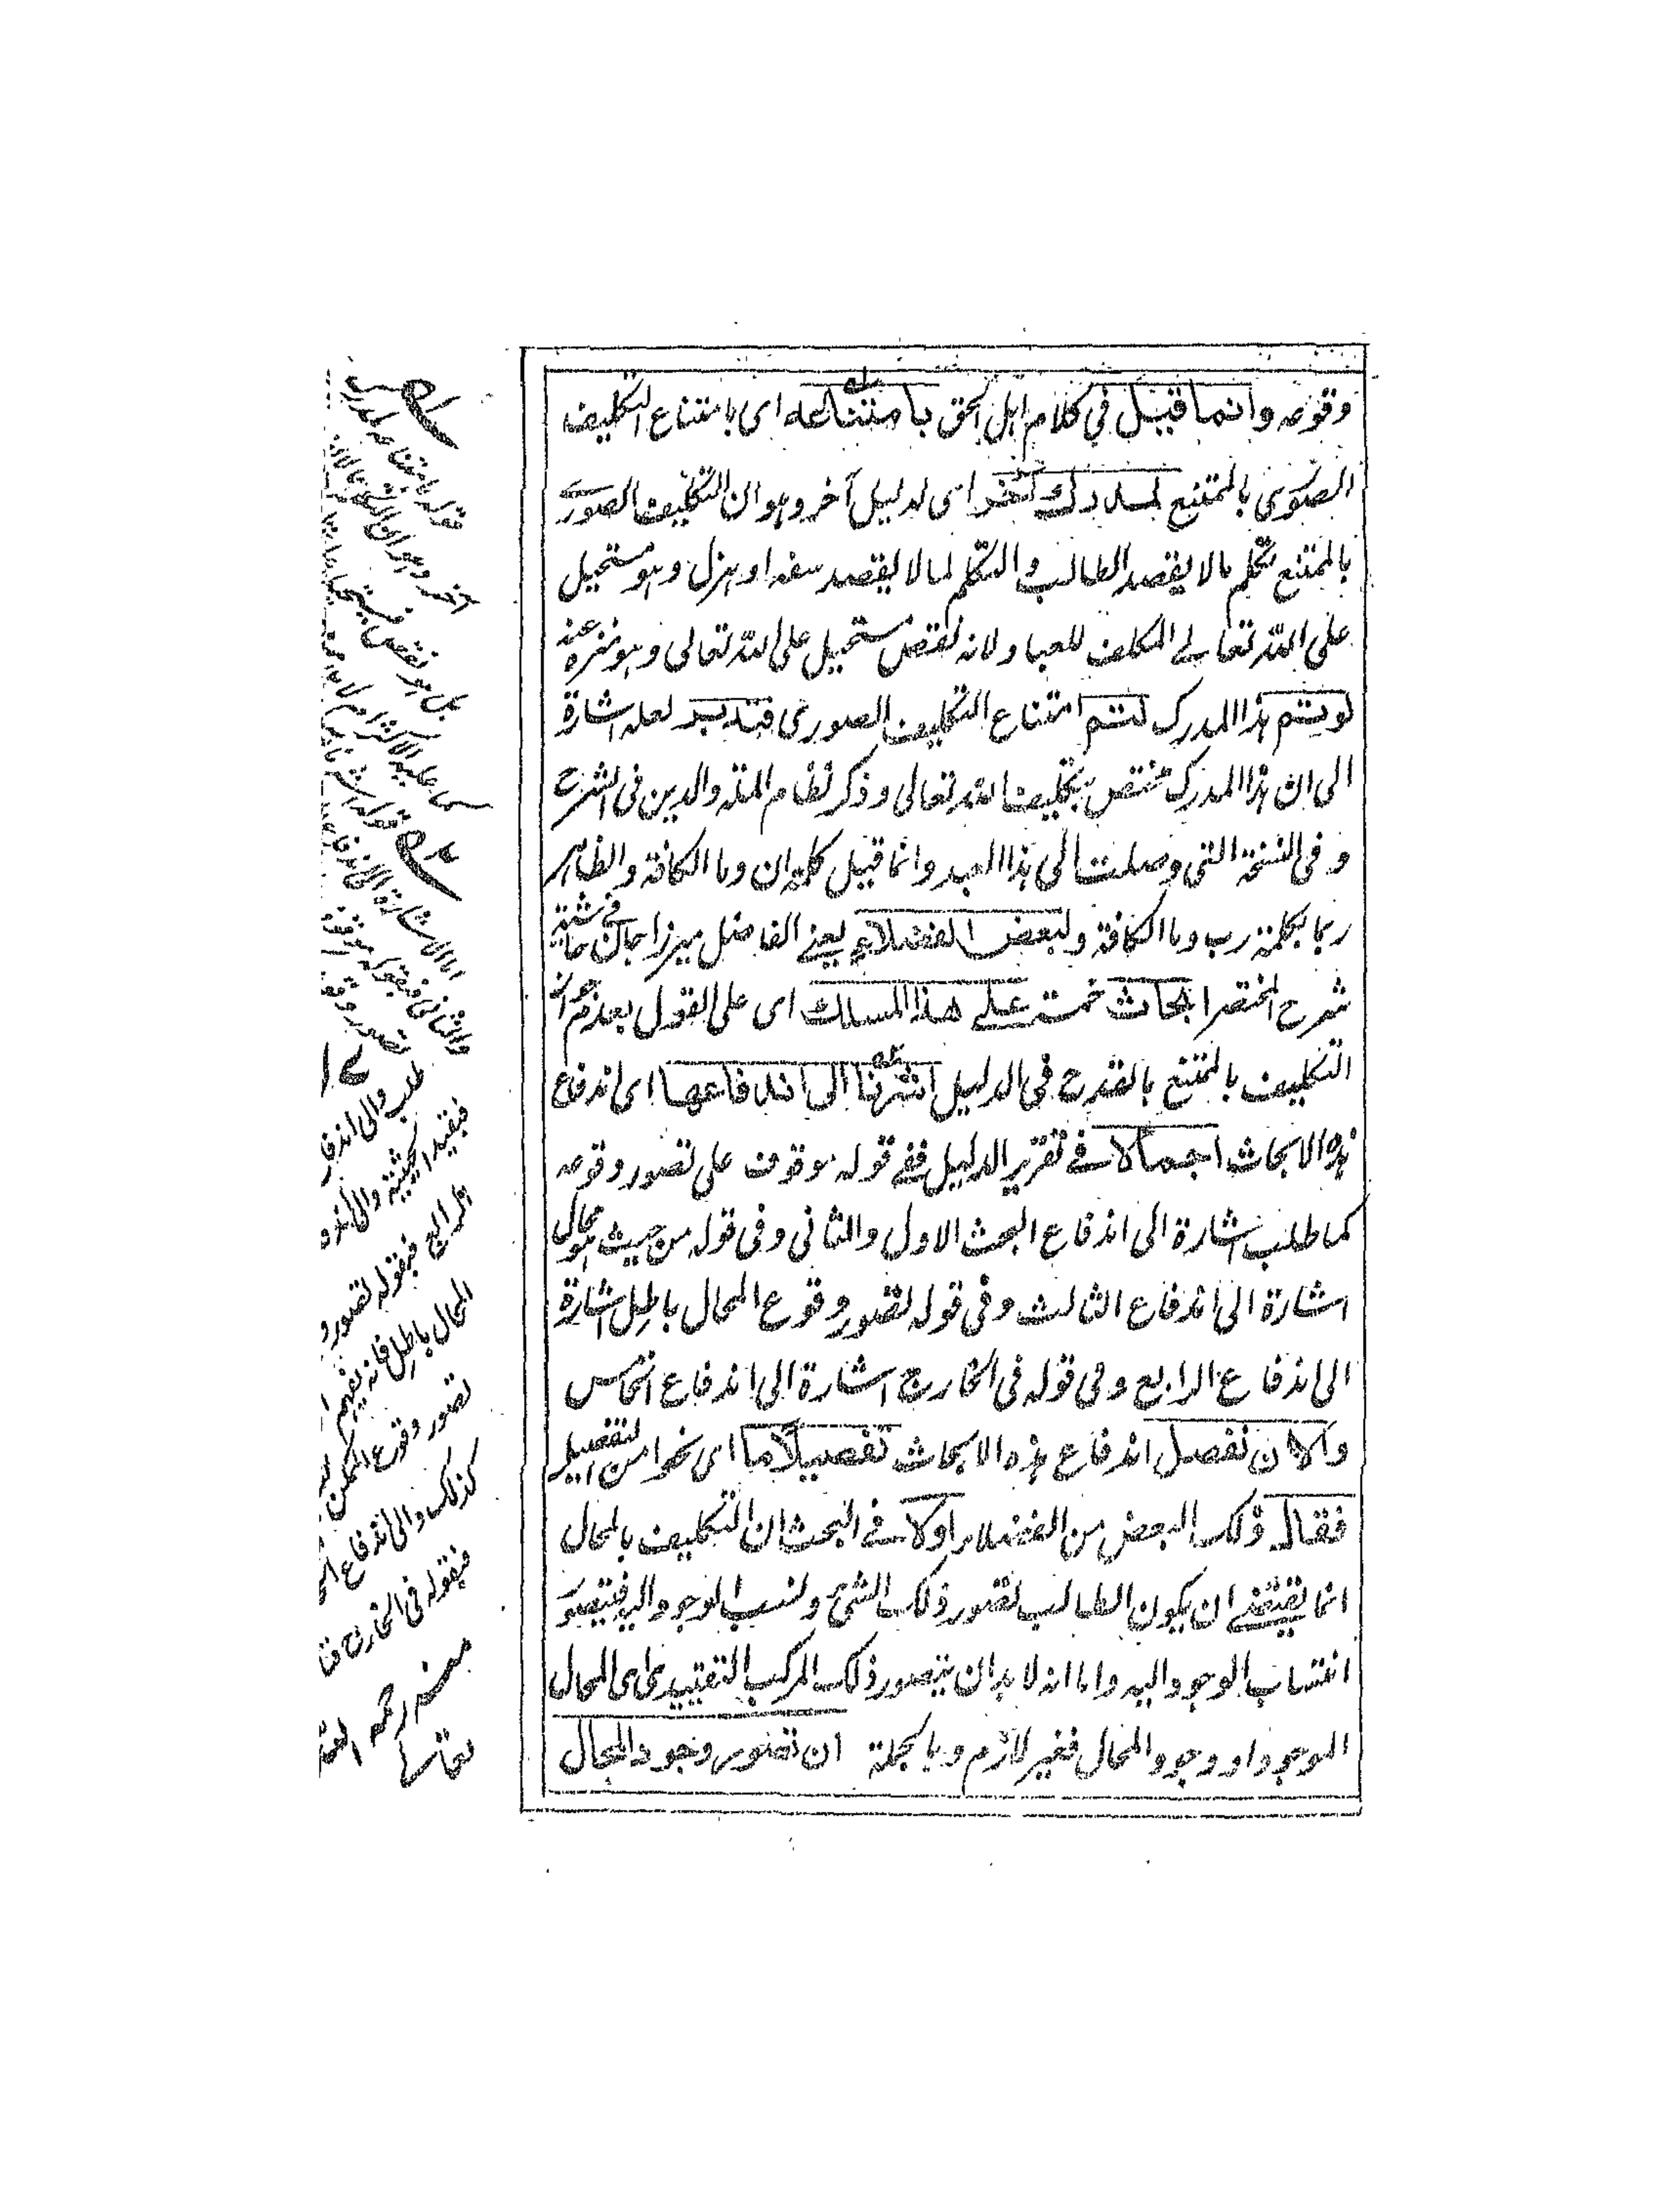 وقوعه وانما قيل في كلام اهل الحق بامتناعه اى بامتناع التكليف
الصورى بالممتنع لمدرك آخر اى لدليل آخر وهو ان التكليف الصورى
بالممتنع تكلم بما لا يقصد الطالب والتكلم لما لا يقصد سفه او هزل وهو مستحيل
على الله تعالى المكلف للعباد لانه نقص مستحيل على الله تعالى وهو منزه عنه
لو يتم هذا المدرك لتم امتناع التكليف الصورى فتدبر لعله اشارة
الى ان هذا المدرك مختص بتكليف الله تعالى وذكر نظام الملة والدين فى الشرح
وفى النسخة التى وصلت الى هذا العبد وانما قيل كلمة ان وما الكافة والظاهر
ربما بكلمة رب وما الكافة ولبعض الفضلاء يعنے الفاضل ميرزا جان فى حاشية
شرح المختصر ابحاث خمسة على هذا المسلك اى على القول بعدم جواز
التكليف بالممتنع بالقدح فى الدليل اشرنا الى اندفاعها اى اندفاع
هذه الابحاث اجمالا فے تقرير الدليل ففے قوله موقوف على تصور وقوعه
كما طلب اشارة الى اندفاع البحث الاول والثانى وفى قوله من حيث هو محال
اشارة الى اندفاع الثالث وفى قوله تصور وقوع المحال باطل اشارة
الى اندفاع الرابع وفى قوله فى الخارج اشارة الى اندفاع الخامس
والان نفصل اندفاع هذه الابحاث تفصيلا ما اى نحوا من التفصيل
فقال ذلك البعض من الفضلاء اولا فے البحث ان التكليف بالمحال
انما يقتضے ان يكون الطالب تصور ذلك الشئ ونسب الوجود اليه فيتصور
انتساب الوجود اليه واما انه لا بد ان يتصور ذلك المركب التقييدى اى المحال
الموجود او وجود المحال فغير لازم وبالجملة ان تصور وجود المحال
طلب والى اندفا
فبقيد الحيثية والى اندفا
الرابع فبقوله تصور و
المحال باطل فانه يفهم
تصور وقوع الممكن
كذلك والى اندفاع
فبقوله فى الخارج
منه رحمه الله
تعالى